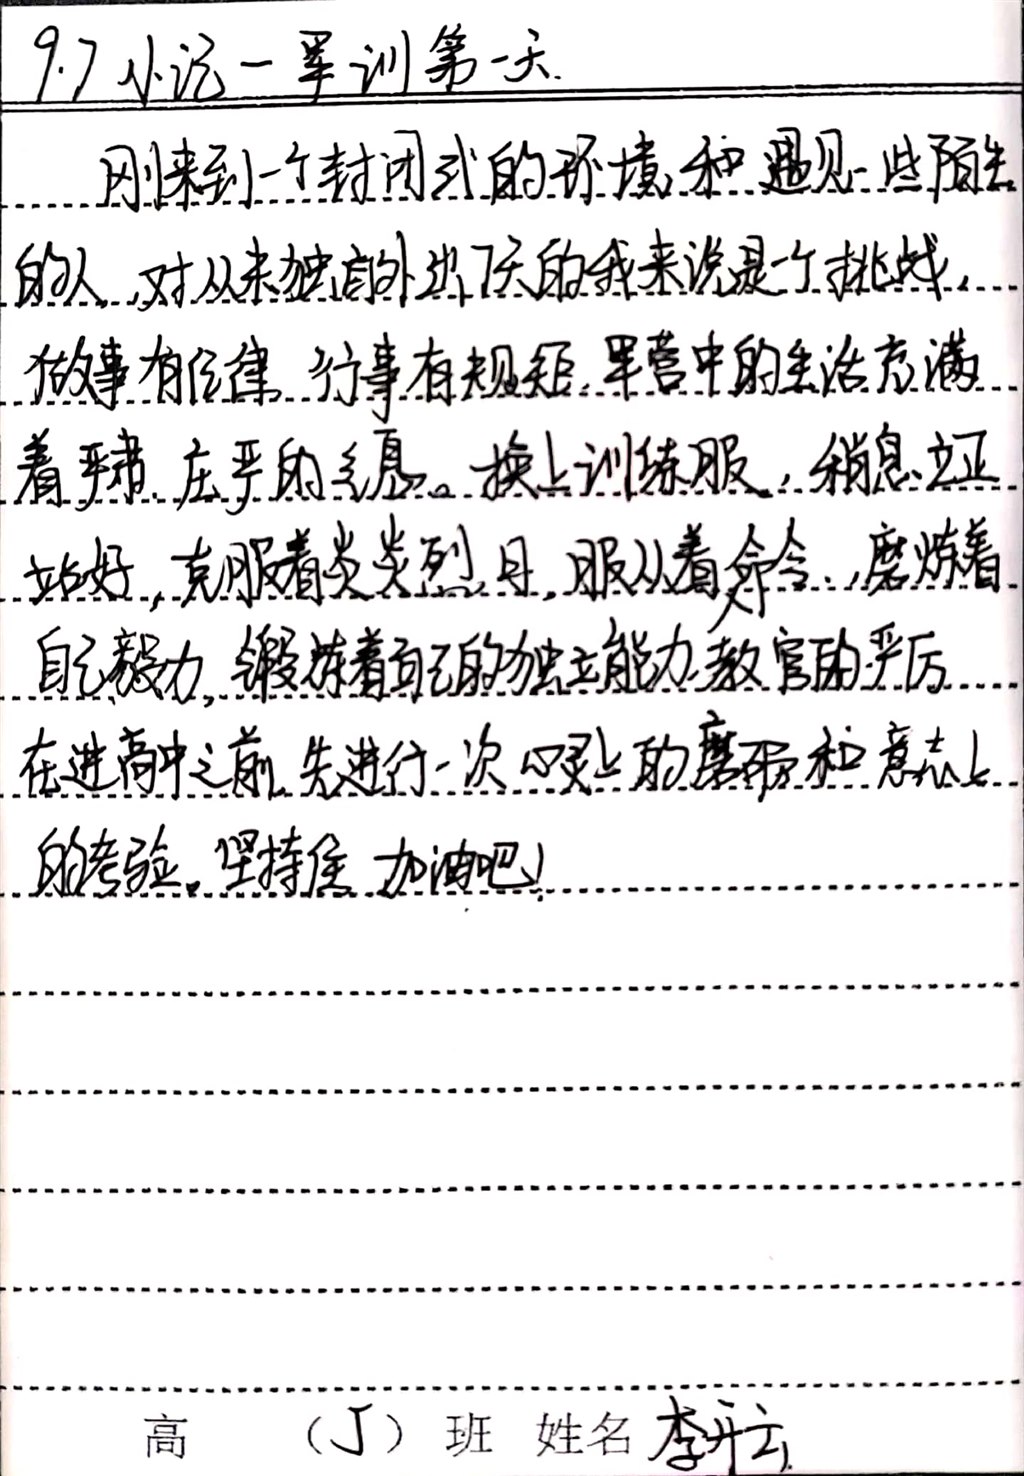 9.7 小记一军训第一天.
刚来到一个封闭式的环境和遇见一些陌生
的人,对从未独自外出7天的我来说是一个挑战,
做事有纪律 行事有规矩,军营中的生活充满
着严肃、庄严的气息。换上训练服,稍息立正
站好,克服着炎炎烈日,服从着命令,磨炼着
自己毅力,锻炼着自己的独立能力,教官的严厉
在进高中之前,先进行一次心灵上的磨砺和意志上
的考验。坚持住 加油吧!
高 (J) 班 姓名 李开云